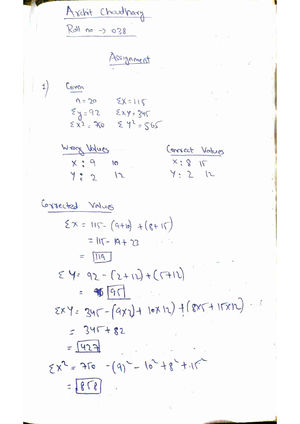 Archit Chaudhary
Roll no → 038
Assignment
1) Given
n = 20 ΣX = 115
Σy = 92 ΣXY = 345
ΣX² = 750 ΣY² = 565
Wrong Values Correct Values
X : 9 10 X : 8 15
Y : 2 12 Y : 2 12
Corrected Values
ΣX = 115 - (9+10) + (8+15)
= 115 - 19 + 23
= 119
ΣY = 92 - (2+12) + (5+12)
= 95
ΣXY = 345 - (9×2) + 10×12) + (8×5 + 15×12)
= 345 + 82
= 427
ΣX² = 750 - (9)² - 10² + 8² + 15²
= 858